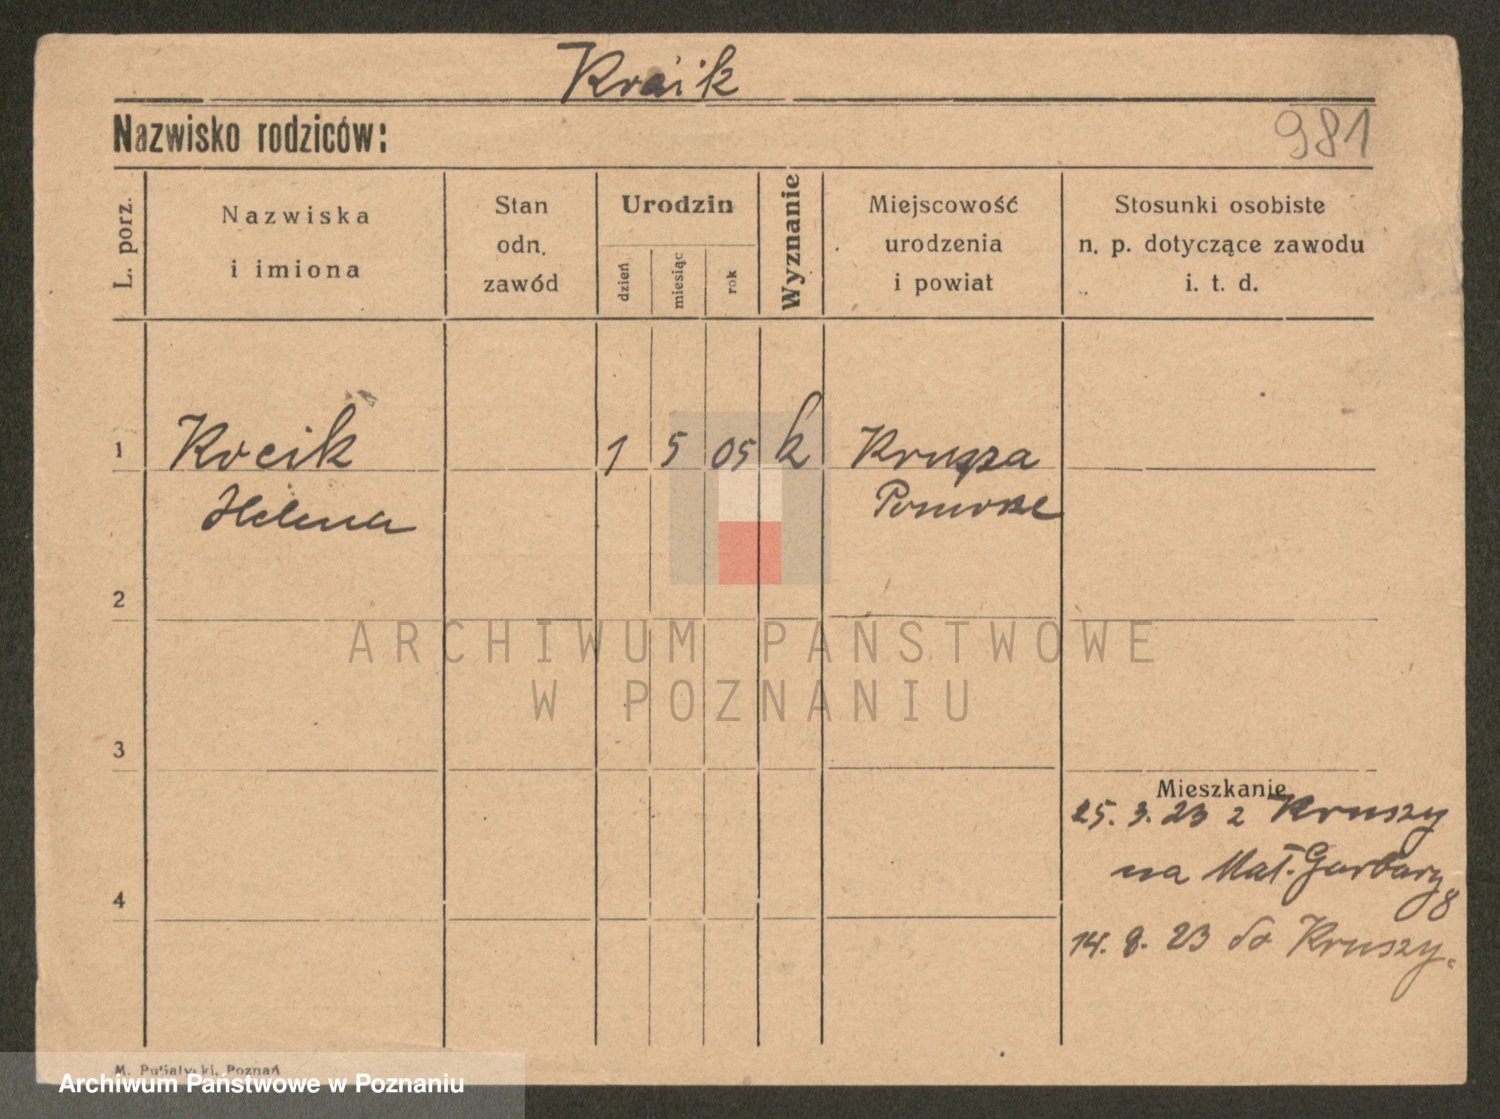 Krcik
981
Nazwisko rodziców:
L. porz.
Nazwiska
i imiona
Stan
odn.
zawód
Urodzin
dzień
miesiąc
rok
Wyznanie
Miejscowość
urodzenia
i powiat
Stosunki osobiste
n. p. dotyczące zawodu
i. t. d.
1 Kocik 1 5 05 k Krusza
Helena Pomorze
2
3
4
Mieszkanie
25. 3. 23 z Kruszy
na Mał. Garbary
8
14. 8. 23 do Kruszy.
M. Putiatycki, Poznań
ARCHIWUM PAŃSTWOWE
W POZNANIU
Archiwum Państwowe w Poznaniu